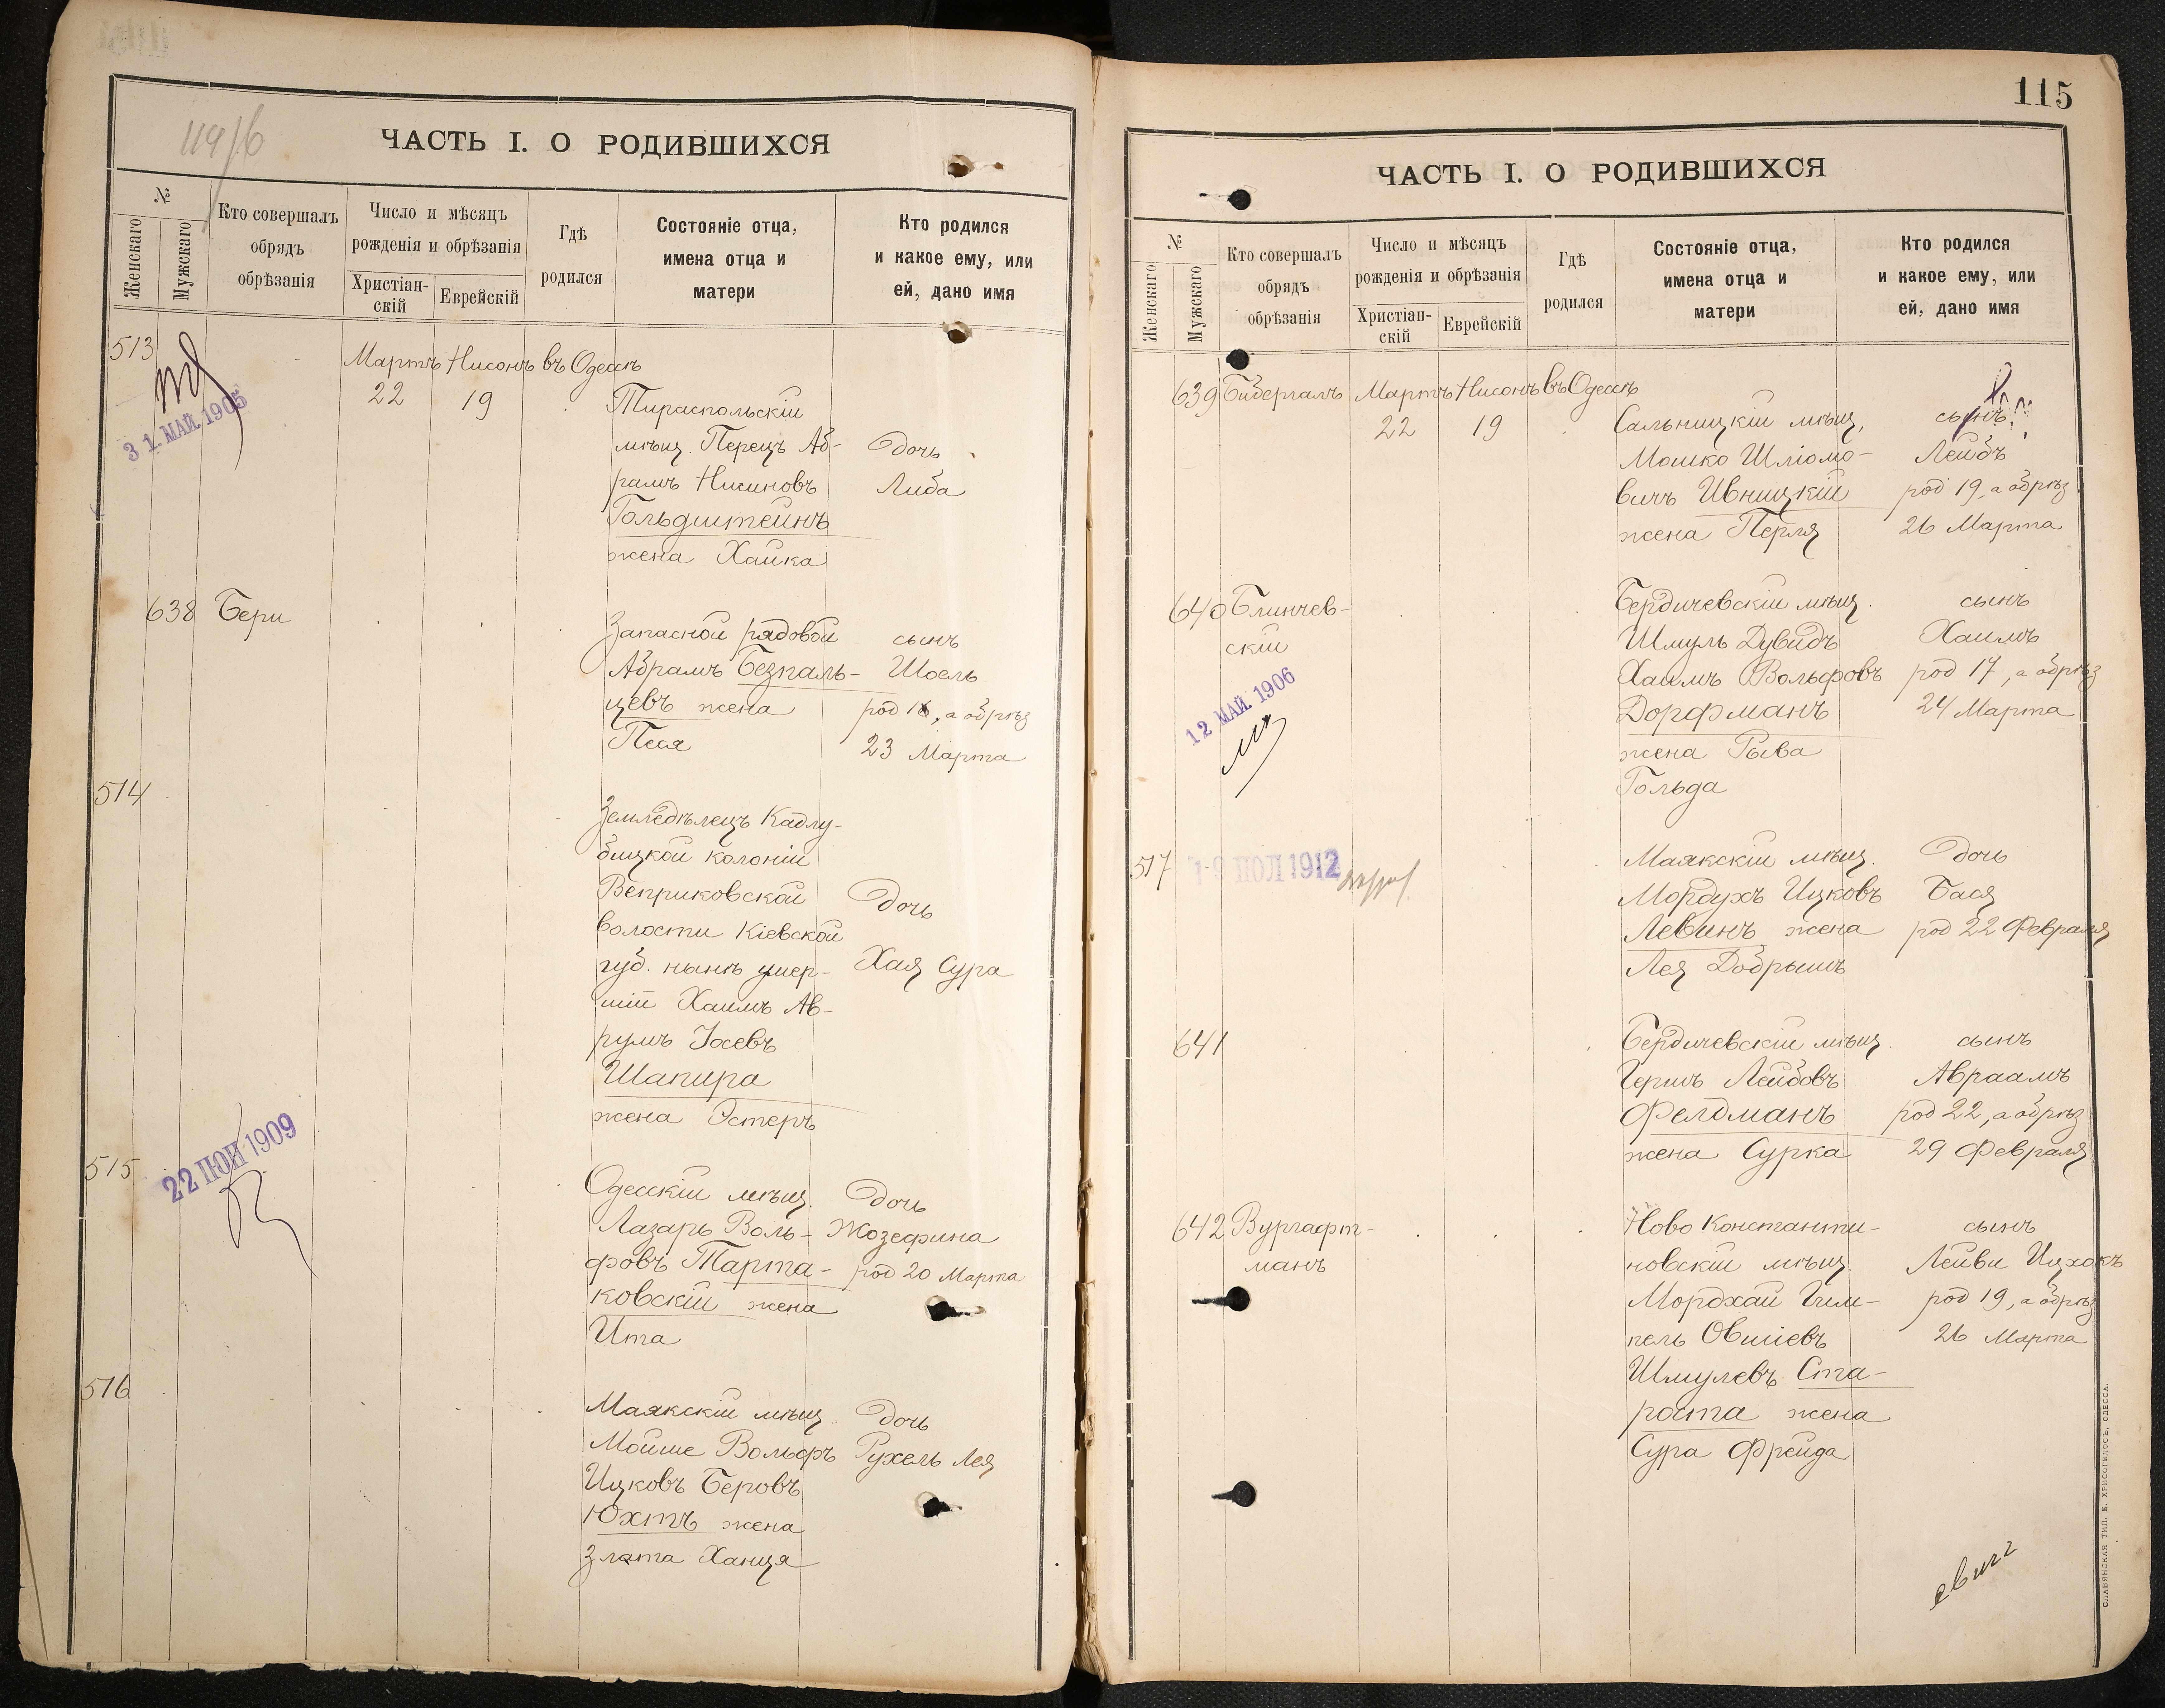 114/б
ЧАСТЬ I. О РОДИВШИХСЯ
№
Женскаго
Мужскаго
Кто совершалъ
обрядъ
обрѣзанія
Число и мѣсяцъ
рожденія и обрѣзанія
Христіан-
скій
Еврейскій
Гдѣ
родился
Состояніе отца,
имена отца и
матери
Кто родился
и какое ему, или
ей, дано имя
513
31 МАЙ 1905
Мартъ Нисонъ въ Одессѣ
22 19
Тираспольскій
мѣщ. Перецъ Аб-
рамъ Нисиновъ
Гольдштейнъ
жена Хайка
Дочь
Либа
638 Бери
Запасной рядовой
Абрамъ Безпаль-
цевъ жена
Песя
сынъ
Шоель
род 16, а обрѣз
23 Марта
514
Земледѣлецъ Кадлу-
бицкой колоніи
Веприковской
волости Кіевской
губ. нынѣ умер-
шій Хаимъ Ав-
румъ Іосевъ
Шапира
жена Эстеръ
Дочь
Хая Сура
515
22 ІЮН 1909
Одесскій мѣщ.
Лазарь Воль-
фовъ Тарта-
ковскій жена
Ита
Дочь
Жозефина
род 20 Марта
516
Маякскій мѣщ.
Мойше Вольфъ
Ицковъ Беровъ
Юхтъ жена
Злата Ханця
Дочь
Рухель Лея
115
ЧАСТЬ I. О РОДИВШИХСЯ
№
Женскаго
Мужскаго
Кто совершалъ
обрядъ
обрѣзанія
Число и мѣсяцъ
рожденія и обрѣзанія
Христіан-
скій
Еврейскій
Гдѣ
родился
Состояніе отца,
имена отца и
матери
Кто родился
и какое ему, или
ей, дано имя
639 Бибергалъ Мартъ Нисонъ въ Одессѣ
22 19
Сальницкій мѣщ.
Мошко Шліомо-
вичъ Ивницкій
жена Перля
сынъ
Лейбъ
род 19, а обрѣз
26 Марта
640 Блинчев-
скій
12 МАЙ 1906
Бердичевскій мѣщ.
Шмуль Дувидъ
Хаимъ Вольфовъ
Дорфманъ
жена Рыва
Гольда
сынъ
Хаимъ
род 17, а обрѣз
24 Марта
517
1912
Маякскій мѣщ.
Мордухъ Ицковъ
Левинъ жена
Лея Добрышъ
Дочь
Бася
род 22 Февраля
641
Бердичевскій мѣщ.
Гершъ Лейбовъ
Фелдманъ
жена Сурка
сынъ
Авраамъ
род 22, а обрѣз
29 Февраля
642 Вургафт-
манъ
Ново Константи-
новскій мѣщ.
Мордхай Гим-
пель Овшіевъ
Шмулевъ Ста-
роста жена
Сура Фрейда
сынъ
Лейви Ицхокъ
род 19, а обрѣз
26 Марта
СЛАВЯНСКАЯ ТИП. Е. ХРИСОГЕЛОСЪ, ОДЕССА.